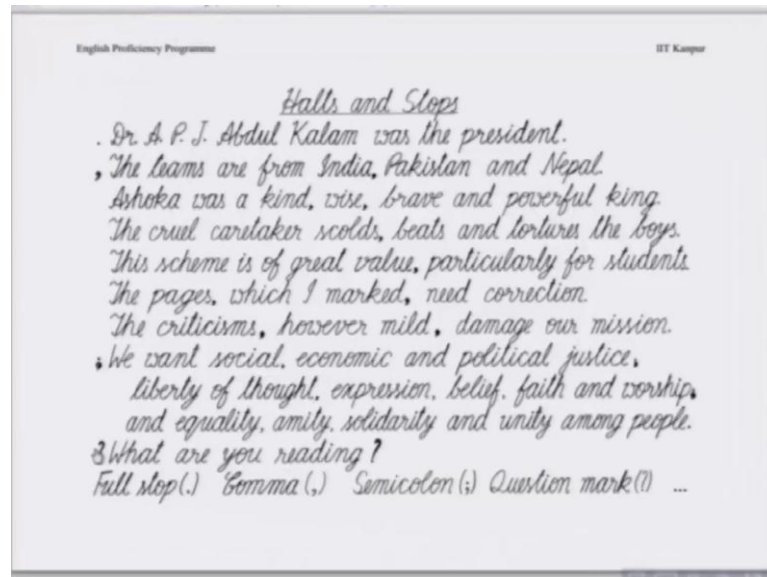 English Proficiency Programme IIT Kanpur
Halts and Stops
. Dr. A. P. J. Abdul Kalam was the president.
, The teams are from India, Pakistan and Nepal.
Ashoka was a kind, wise, brave and powerful king.
The cruel caretaker scolds, beats and tortures the boys.
This scheme is of great value, particularly for students.
The pages, which I marked, need correction.
The criticisms, however mild, damage our mission.
; We want social, economic and political justice;
liberty of thought, expression, belief, faith and worship;
and equality, amity, solidarity and unity among people.
? What are you reading?
Full stop(.) Comma(,) Semicolon(;) Question mark(?) ...